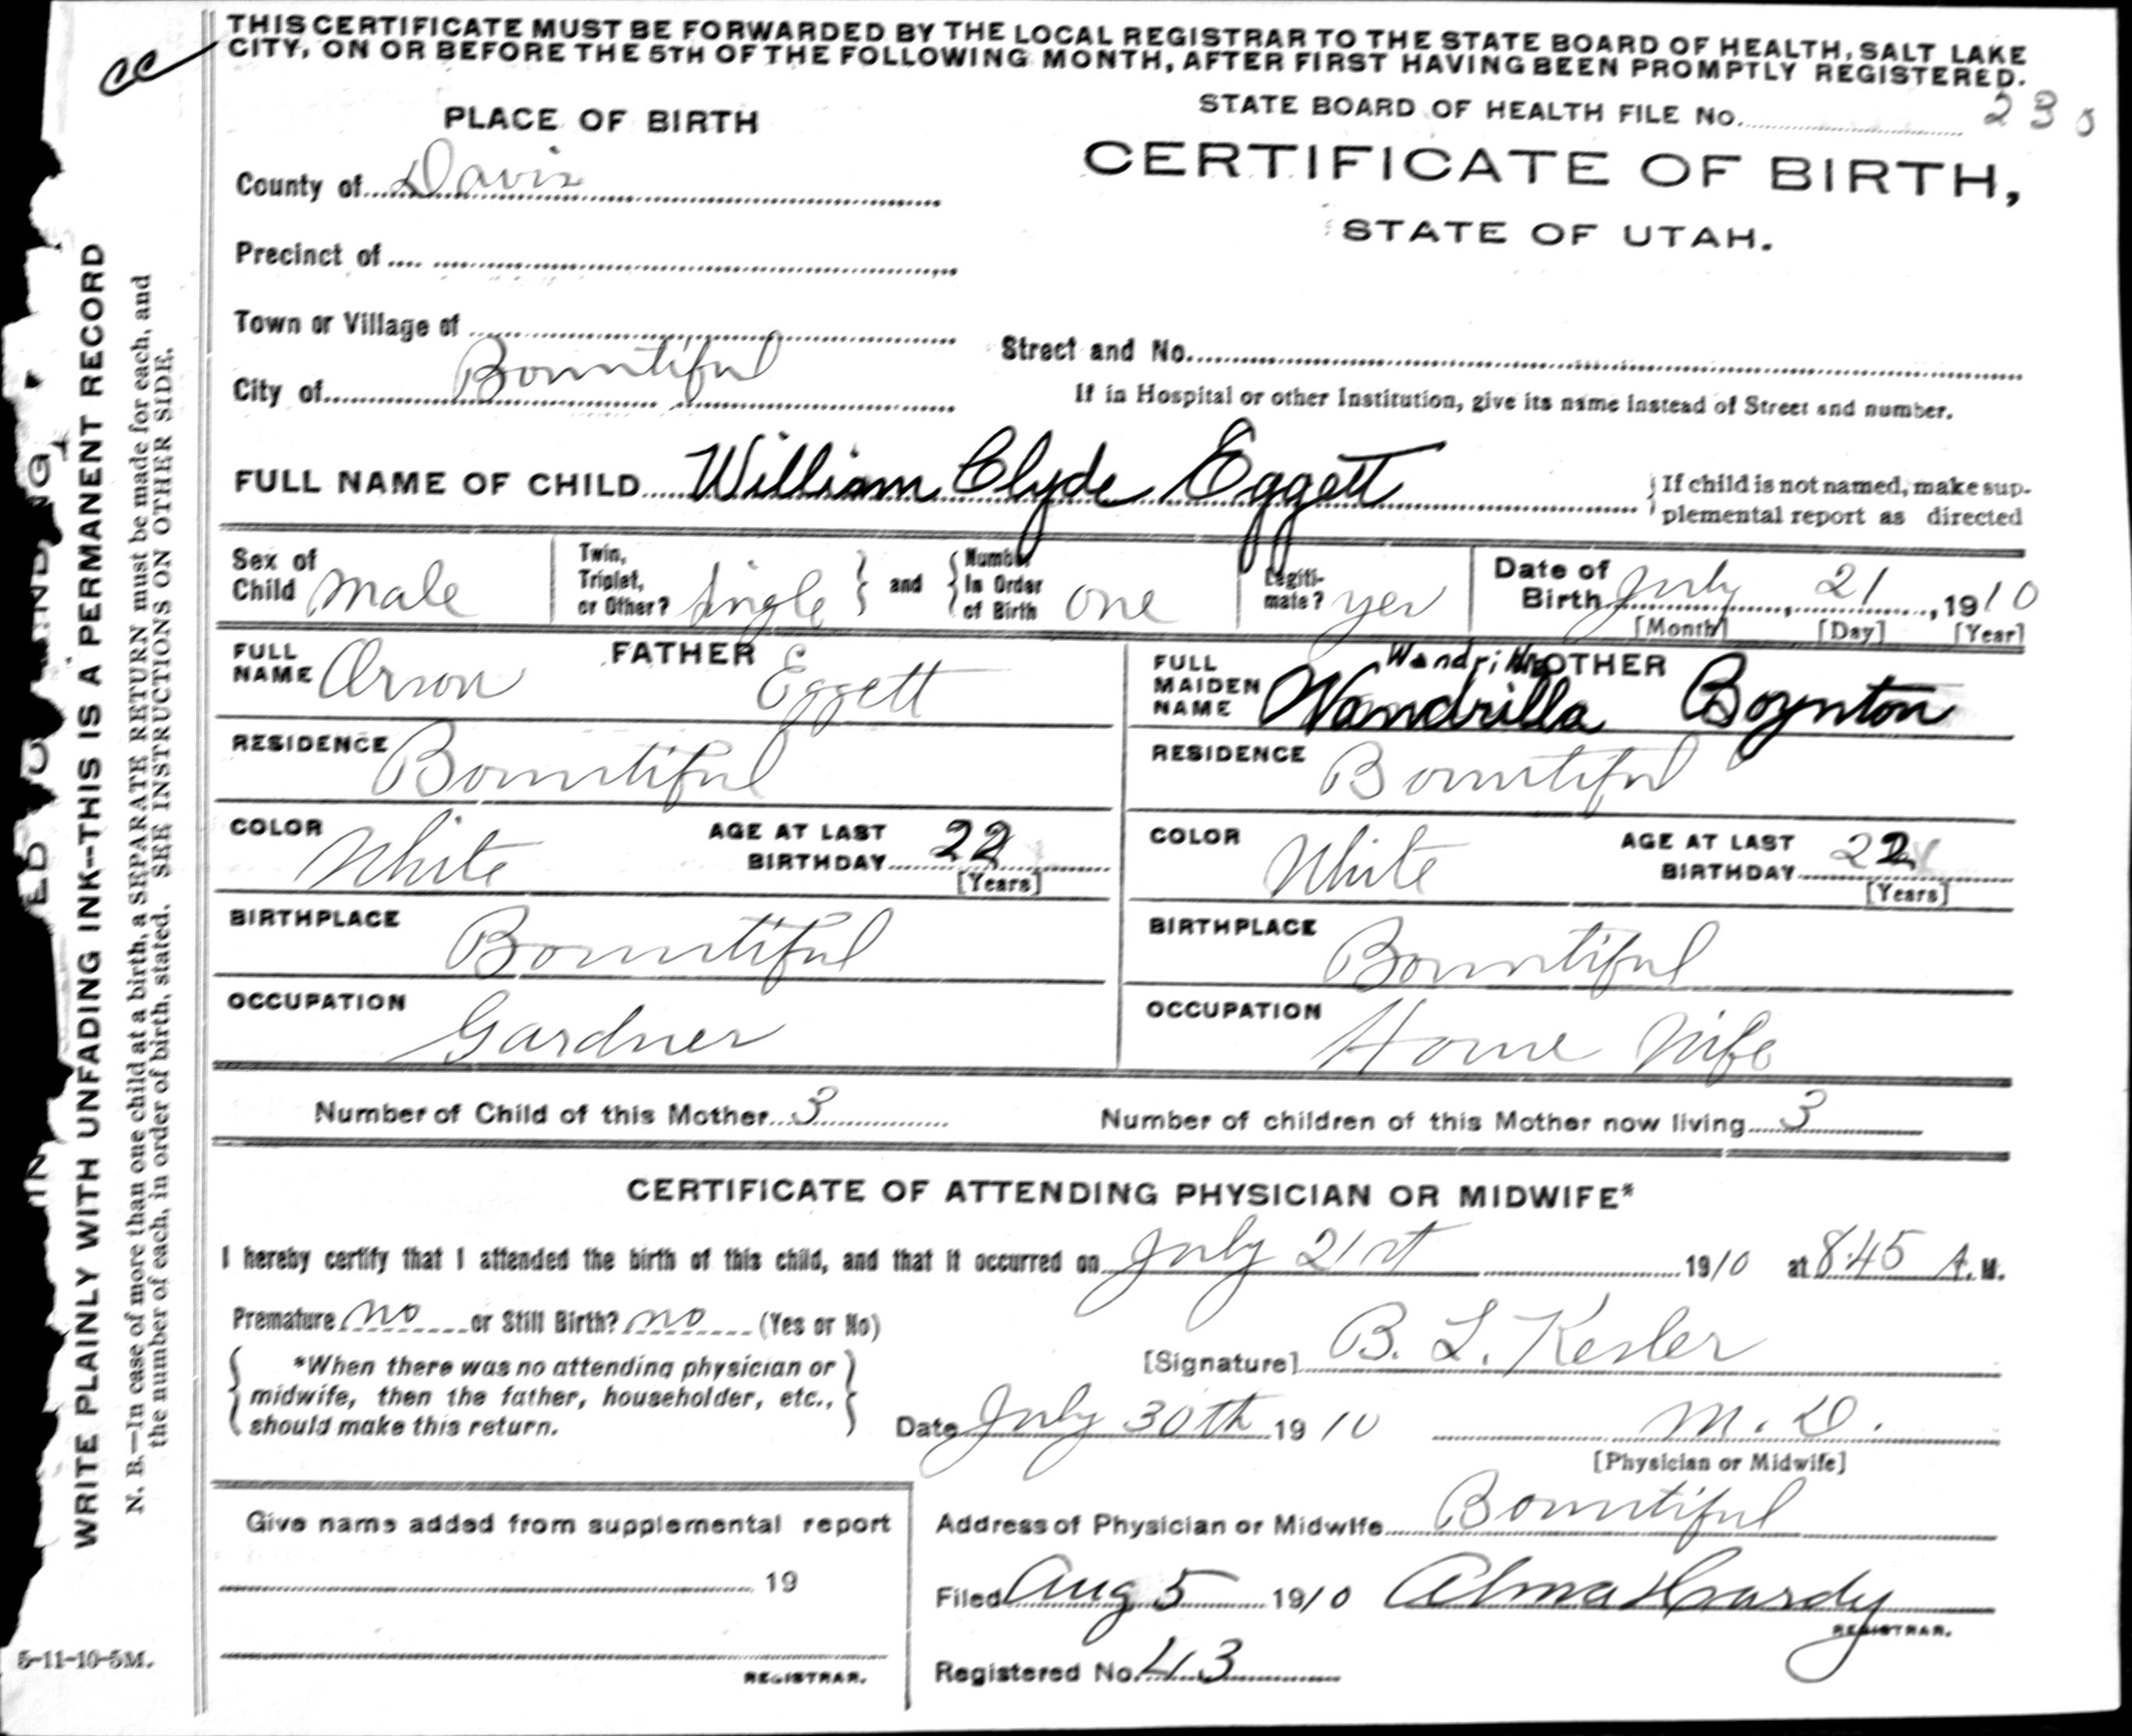 THIS CERTIFICATE MUST BE FORWARDED BY THE LOCAL REGISTRAR TO THE STATE BOARD OF HEALTH, SALT LAKE
CITY, ON OR BEFORE THE 5TH OF THE FOLLOWING MONTH, AFTER FIRST HAVING BEEN PROMPTLY REGISTERED.
cc
PLACE OF BIRTH
STATE BOARD OF HEALTH FILE No. 23
CERTIFICATE OF BIRTH,
STATE OF UTAH.
County of Davis
Precinct of
Town or Village of
Street and No.
City of Bountiful
If in Hospital or other Institution, give its name instead of Street and number.
FULL NAME OF CHILD William Clyde Eggett
If child is not named, make sup-
plemental report as directed
Sex of Child Male
Twin, Triplet, or Other? Single and Number In Order of Birth One
Legiti-mate? yes
Date of Birth July 21, 1910
[Month] [Day] [Year]
FATHER
FULL NAME Orson Eggett
RESIDENCE Bountiful
COLOR White AGE AT LAST BIRTHDAY 22
[Years]
BIRTHPLACE Bountiful
OCCUPATION Gardner
MOTHER
FULL MAIDEN NAME Wandrilla Boynton
RESIDENCE Bountiful
COLOR White AGE AT LAST BIRTHDAY 22
[Years]
BIRTHPLACE Bountiful
OCCUPATION House Wife
Number of Child of this Mother 3
Number of children of this Mother now living 3
CERTIFICATE OF ATTENDING PHYSICIAN OR MIDWIFE*
I hereby certify that I attended the birth of this child, and that it occurred on July 21st 1910 at 8:45 A. M.
Premature no or Still Birth? no (Yes or No)
*When there was no attending physician or
midwife, then the father, householder, etc.,
should make this return.
[Signature] B. L. Kesler
Date July 30th 1910 M. D.
[Physician or Midwife]
Give name added from supplemental report
19
REGISTRAR.
Address of Physician or Midwife Bountiful
Filed Aug 5 1910 Alma Hardy
REGISTRAR.
Registered No. 43
WRITE PLAINLY WITH UNFADING INK--THIS IS A PERMANENT RECORD
N. B.—In case of more than one child at a birth, a SEPARATE RETURN must be made for each, and
the number of each, in order of birth, stated. SEE INSTRUCTIONS ON OTHER SIDE.
5-11-10-5M.